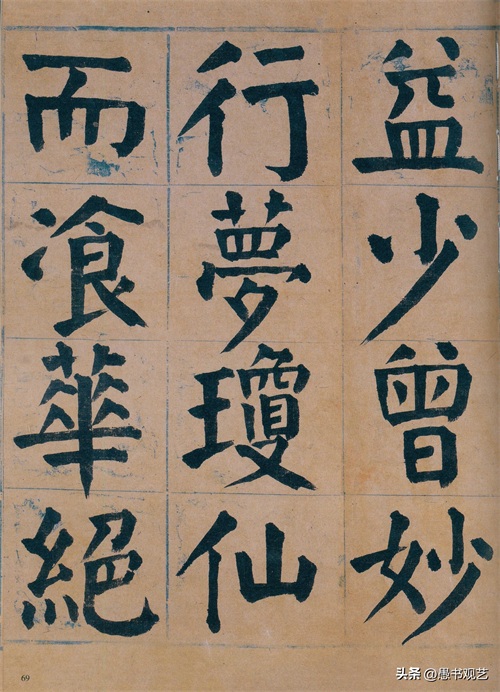 益少曾妙
行夢瓊仙
而飡華絶
69
头条 @愚书观艺